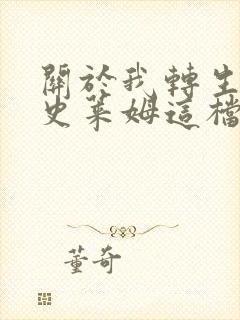 關於我轉生
史萊姆這檔
董奇